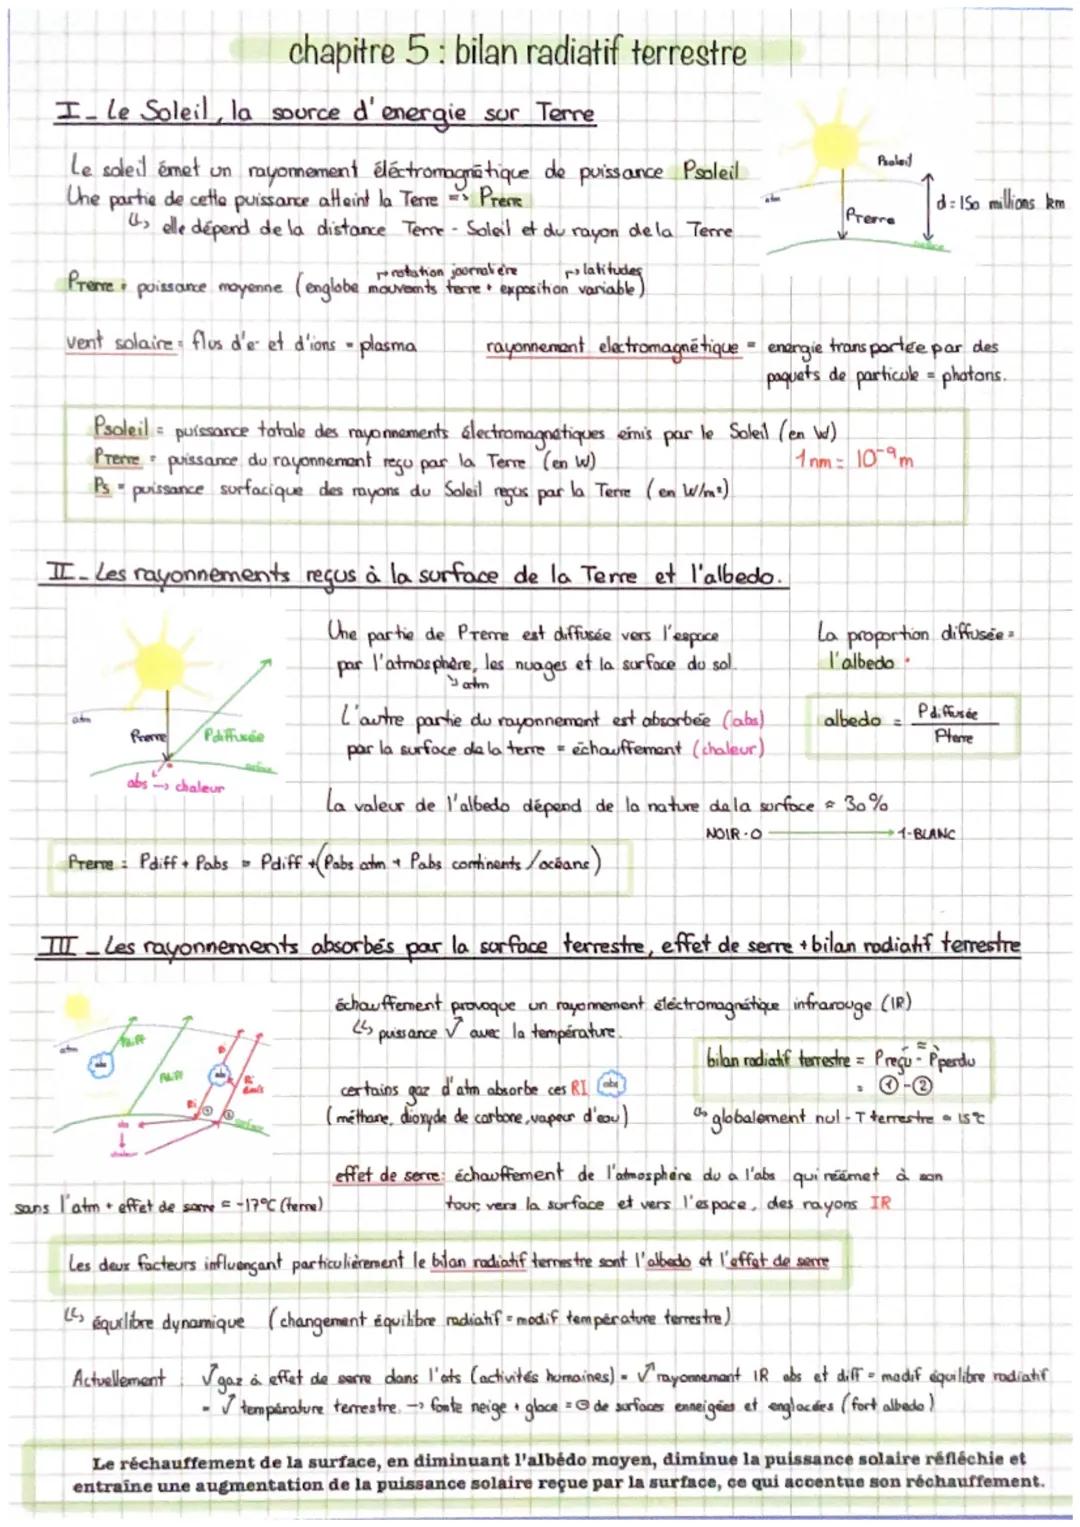 chapitre 5 : bilan radiatif terrestre
I_ Le Soleil, la source d'energie sur Terre
Le soleil émet un rayonnement éléctromagnétique de puissance Psoleil
Une partie de cette puissance atteint la Terre => Pterre
↳ elle dépend de la distance Terre - Soleil et du rayon de la Terre
Psoleil
atm
Pterre
d = 150 millions km
surface
↱ rotation journalière ↱ latitudes
Pterre = puissance moyenne (englobe mouvemts terre + exposition variable)
vent solaire = flus d'e- et d'ions = plasma
rayonnement electromagnétique = energie transportée par des
paquets de particule = photons.
Psoleil = puissance totale des rayonnements électromagnetiques émis par le Soleil (en W)
Pterre = puissance du rayonnement reçu par la Terre (en W)
1 nm = 10⁻⁹ m
Ps = puissance surfacique des rayons du Soleil reçus par la Terre (en W/m²)
II_ Les rayonnements reçus à la surface de la Terre et l'albedo.
atm
Pterre
Pdiffusée
surface
abs → chaleur
Une partie de Pterre est diffusée vers l'espace
par l'atmosphère, les nuages et la surface du sol.
↘ atm
L'autre partie du rayonnement est absorbée (abs)
par la surface de la terre = échauffement (chaleur)
La proportion diffusée =
l'albedo.
albedo = Pdiffusée
Pterre
La valeur de l'albedo dépend de la nature de la surface ≈ 30%
NOIR = 0 → 1 = BLANC
Pterre = Pdiff + Pabs = Pdiff + (Pabs atm + Pabs continents / océans)
III_ Les rayonnements absorbés par la surface terrestre, effet de serre + bilan radiatif terrestre
atm
Pdiff
abs
Pdiff
abs
Ri
Ri
émis
Ri
① ②
surface
abs
chaleur
échauffement provoque un rayonnement éléctromagnétique infrarouge (IR)
↳ puissance ↗ avec la température.
certains gaz d'atm absorbe ces RI abs
(méthane, dioxyde de carbone, vapeur d'eau)
bilan radiatif terrestre = Preçu - Pperdu
= ① - ②
↳ globalement nul - T terrestre = 15°C
effet de serre: échauffement de l'atmosphère du a l'abs qui réémet à son
tour, vers la surface et vers l'espace, des rayons IR
sans l'atm + effet de serre = -17°C (terre)
Les deux facteurs influençant particulièrement le bilan radiatif terrestre sont l'albedo et l'effet de serre
↳ équilibre dynamique (changement équilibre radiatif = modif température terrestre)
Actuellement : ↗ gaz à effet de serre dans l'ats (activités humaines) = ↗ rayonnement IR abs et diff = modif équilibre radiatif
= ↗ température terrestre. → fonte neige + glace = ⊖ de surfaces enneigées et englacées (fort albedo)
Le réchauffement de la surface, en diminuant l'albédo moyen, diminue la puissance solaire réfléchie et
entraîne une augmentation de la puissance solaire reçue par la surface, ce qui accentue son réchauffement.